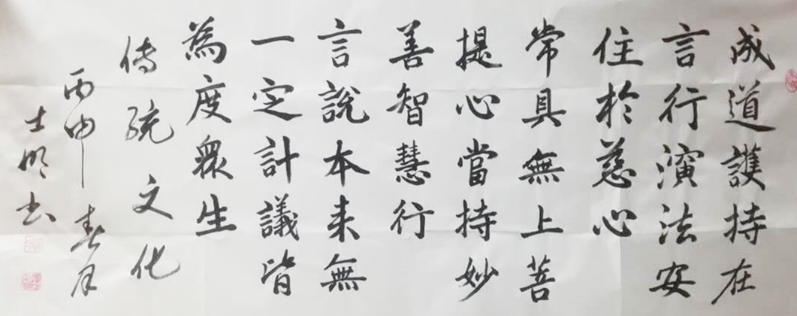 成道護持在
言行演法安
住於慈心
常具無上菩
提心當持妙
善智慧行
言說本来無
一定計議皆
為度眾生
傳統文化
丙申春月
士明书